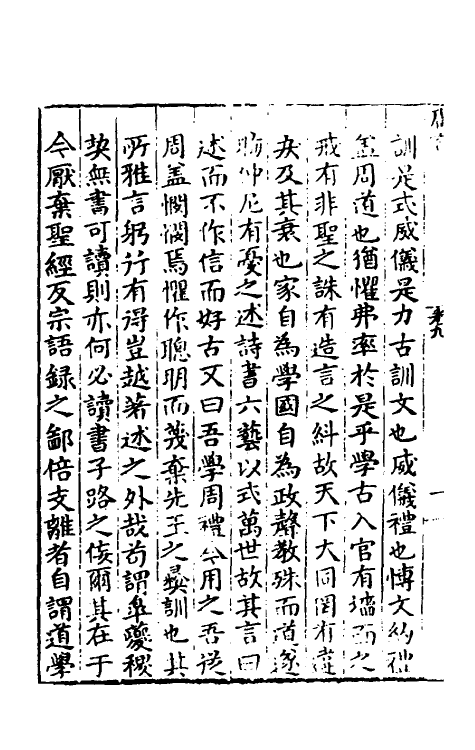 卷九
訓是式威儀是力古訓文也威儀禮也博文約禮
盖周道也猶懼弗率於是乎學古入官有
戒有非聖之誅有造言之糾故天下大同罔有
及其衰也家自為學國自為政聲教殊而道
仲尼有憂之述詩書六藝以式萬世故其言曰
述而不作信而好古又曰吾學周禮今用之吾從
周盖憫焉懼作聰明而蔑棄先王之彞訓也其
所雅言躬行有得豈越著述之外哉苟謂臯夔稷
契無書可讀則亦何必讀書子路之佞爾其在于
今厭棄聖經反宗語録之鄙倍支離者自謂道學